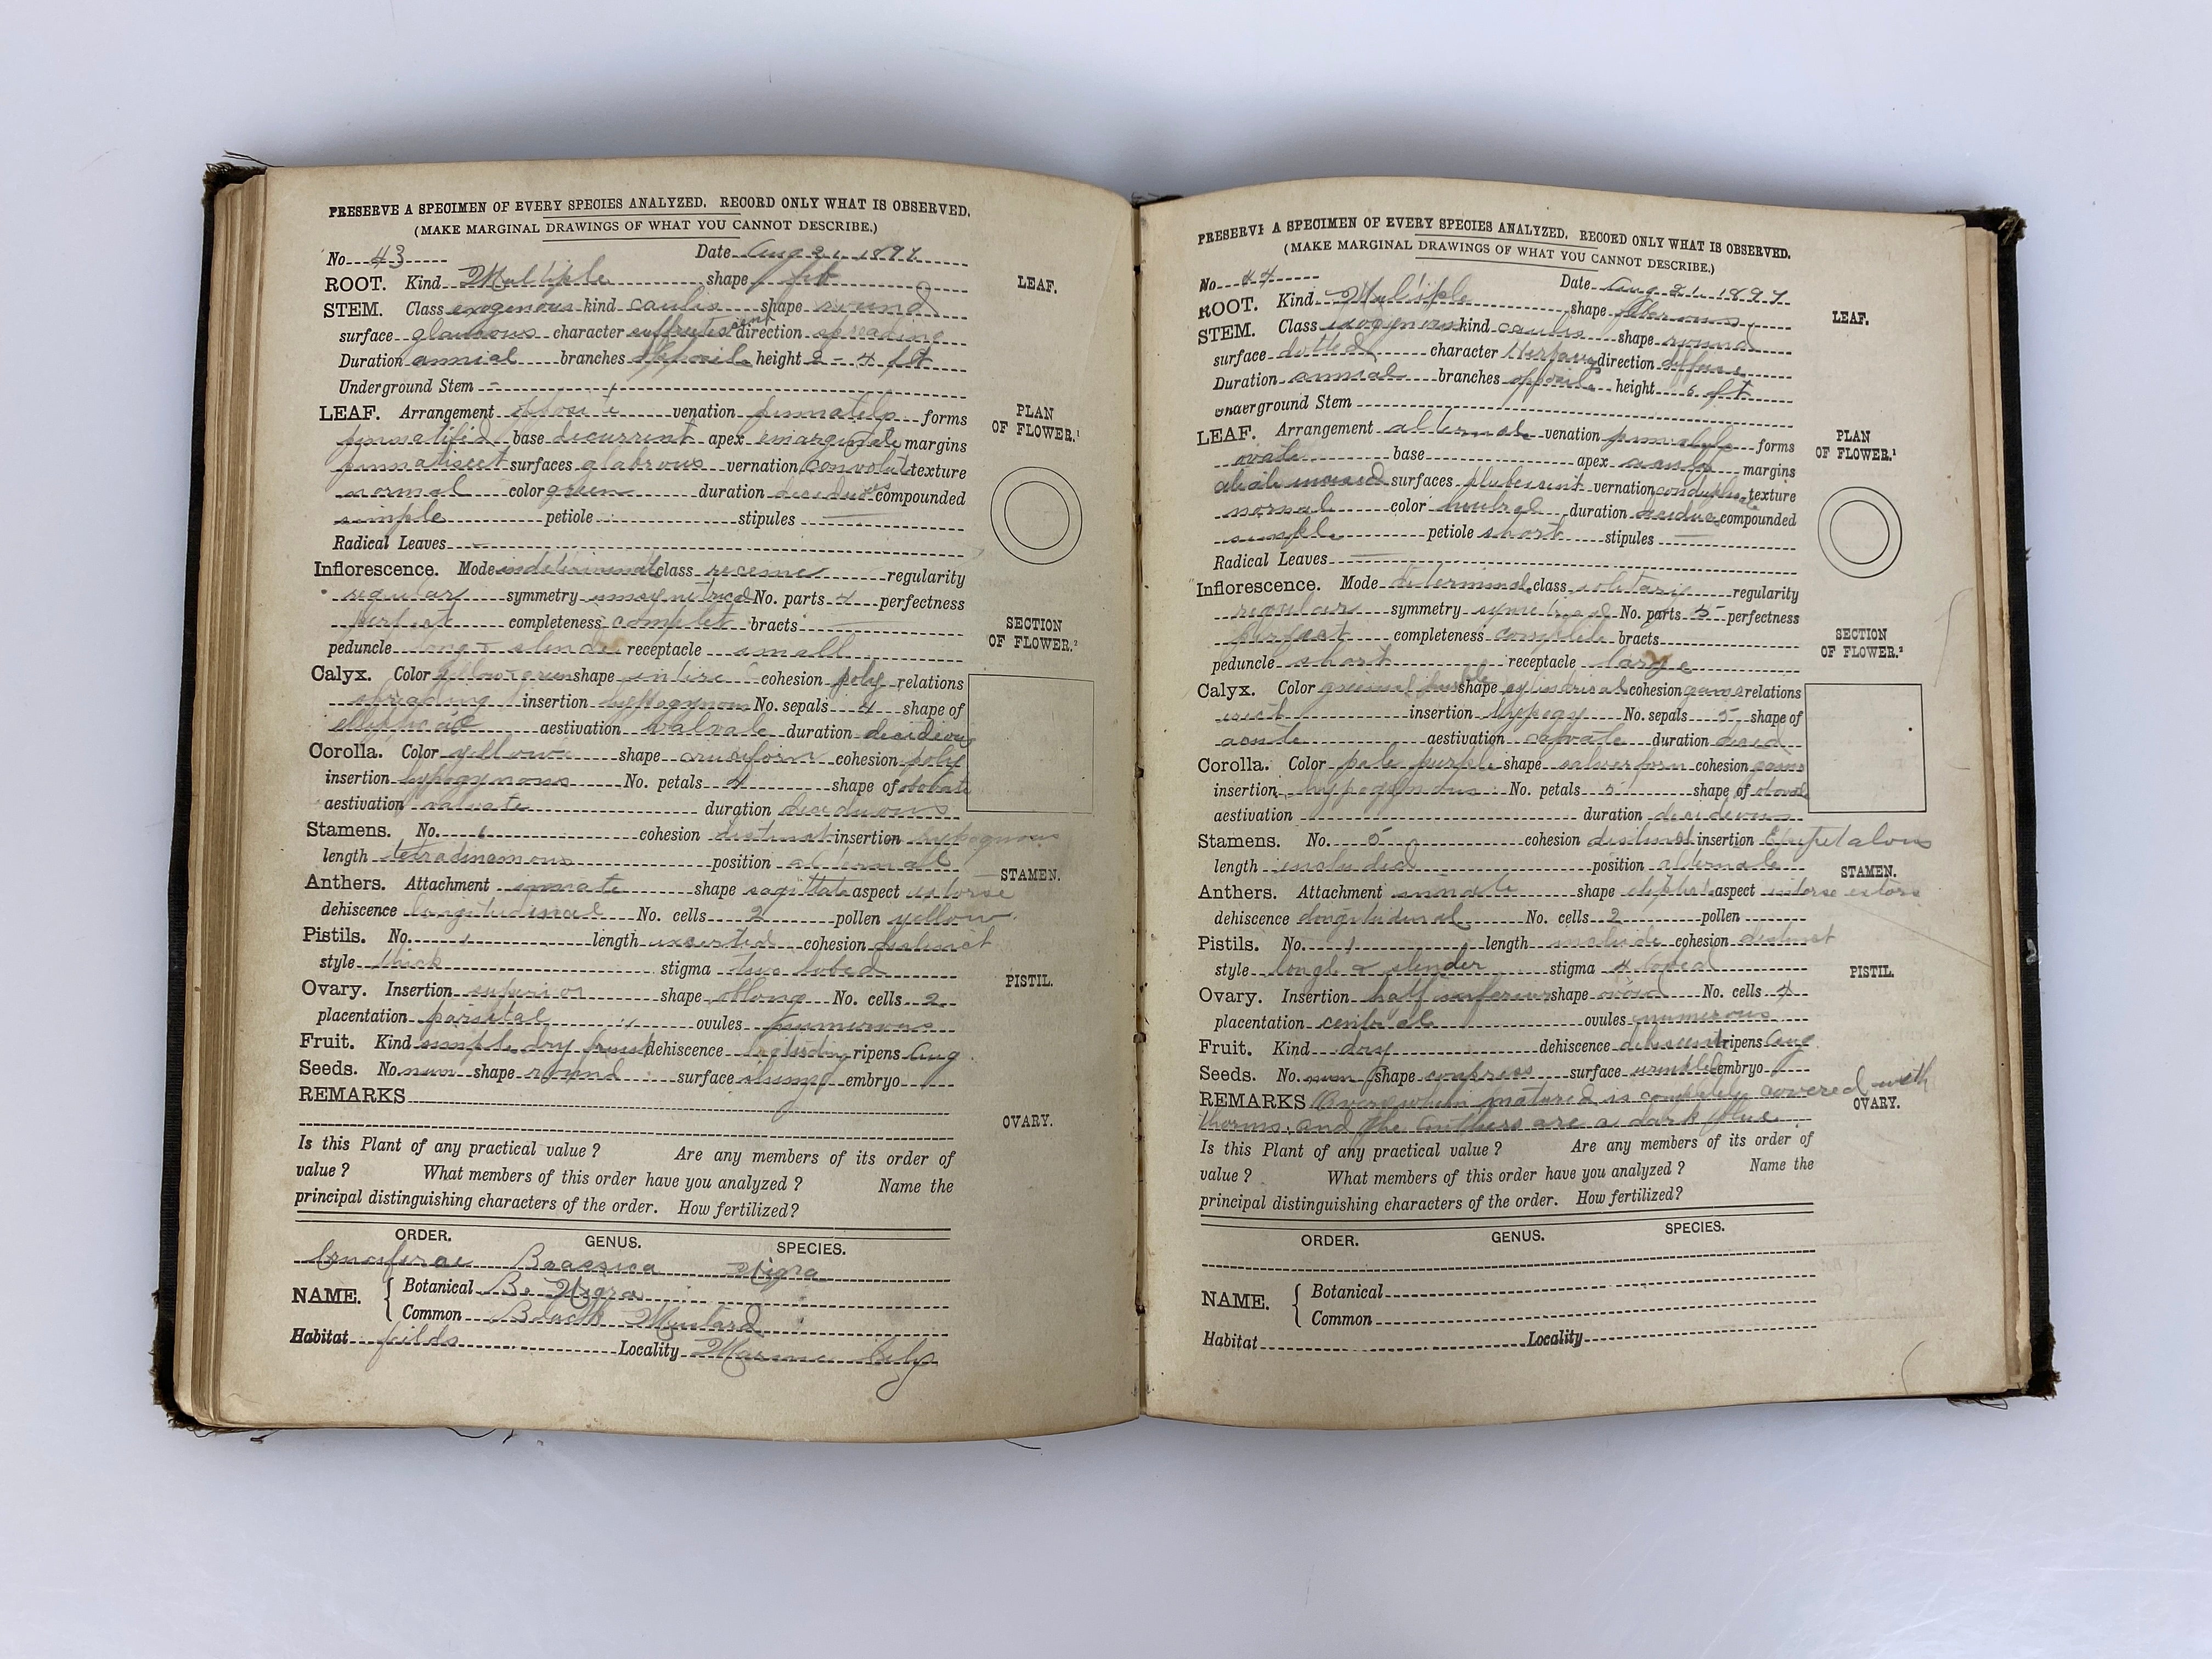 PRESERVE A SPECIMEN OF EVERY SPECIES ANALYZED. RECORD ONLY WHAT IS OBSERVED.
(MAKE MARGINAL DRAWINGS OF WHAT YOU CANNOT DESCRIBE.)
No. 43 Date Aug 21, 1897
ROOT. Kind Multiple shape
LEAF.
STEM. Class exogenous kind caulis shape round
surface glabrous character direction spreading
Duration annual branches height 2 - 4 ft
Underground Stem -
LEAF. Arrangement venation pinnately forms
PLAN OF FLOWER.¹
pinnatifid base decurrent apex emarginate margins
pinnatisect surfaces glabrous vernation convolute texture
normal color green duration deciduous compounded
simple petiole stipules —
Radical Leaves -
Inflorescence. Mode class receme regularity
regular symmetry No. parts 4 perfectness
SECTION OF FLOWER.²
perfect completeness complet bracts —
peduncle receptacle small
Calyx. Color shape entire cohesion poly relations
spreading insertion hypogynous No. sepals 4 shape of
aestivation valvate duration decideous
Corolla. Color yellow shape cruciform cohesion poly
insertion hypogynous No. petals 4 shape of obovate
aestivation valvate duration deciduous
Stamens. No. 6 cohesion distinct insertion
length position
STAMEN.
Anthers. Attachment innate shape sagittate aspect
dehiscence longitudinal No. cells 2 pollen yellow
Pistils. No. 1 length exserted cohesion distinct
style thick stigma two lobed
PISTIL.
Ovary. Insertion superior shape oblong No. cells 2
placentation parietal ovules numerous
Fruit. Kind simple dry fruit dehiscence ripens Aug
Seeds. No. num shape round surface embryo
REMARKS
OVARY.
Is this Plant of any practical value? Are any members of its order of
value? What members of this order have you analyzed? Name the
principal distinguishing characters of the order. How fertilized?
ORDER. GENUS. SPECIES.
Cruciferae Brassica Nigra
NAME. { Botanical B. Nigra
Common Black Mustard
Habitat fields Locality
PRESERVE A SPECIMEN OF EVERY SPECIES ANALYZED. RECORD ONLY WHAT IS OBSERVED.
(MAKE MARGINAL DRAWINGS OF WHAT YOU CANNOT DESCRIBE.)
No. 44 Date Aug 21, 1897
ROOT. Kind Multiple shape fiberous
LEAF.
STEM. Class exogenous kind caulis shape round
surface dotted character direction diffuse
Duration annual branches height 6 ft
Underground Stem
LEAF. Arrangement alternate venation forms
PLAN OF FLOWER.¹
ovate base apex acute margins
surfaces vernation texture
normal color duration compounded
simple petiole short stipules —
Radical Leaves —
Inflorescence. Mode determinal class solitary regularity
regular symmetry No. parts 5 perfectness
SECTION OF FLOWER.²
perfect completeness complete bracts
peduncle short receptacle large
Calyx. Color shape cylindrical cohesion gamo relations
erect insertion hypogy No. sepals 5 shape of
acute aestivation duration decid
Corolla. Color pale purple shape salverform cohesion gamo
insertion hypogynous No. petals 5 shape of
aestivation duration decideous
Stamens. No. 5 cohesion distinct insertion
length included position alternate
STAMEN.
Anthers. Attachment innate shape aspect
dehiscence longitudinal No. cells 2 pollen
Pistils. No. 1 length include cohesion distinct
style long & slender stigma 4 lobed
PISTIL.
Ovary. Insertion half shape ovoid No. cells 4
placentation central ovules numerous
Fruit. Kind dry dehiscence ripens Aug
Seeds. No. num shape compress surface wrinkled embryo
REMARKS when matured is completely covered with
OVARY.
thorns and the anthers are a dark blue.
Is this Plant of any practical value? Are any members of its order of
value? What members of this order have you analyzed? Name the
principal distinguishing characters of the order. How fertilized?
ORDER. GENUS. SPECIES.
NAME. { Botanical
Common
Habitat Locality